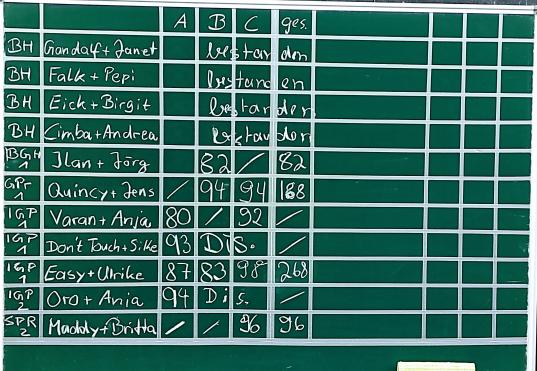 A B C ges.
BH Gandalf + Janet bestanden
BH Falk + Pepi bestanden
BH Eick + Birgit bestanden
BH Cimba + Andrea bestanden
BGH 1 Ilan + Jörg 82 / 82
GPr 1 Quincy + Jens / 94 94 188
IGP 1 Varan + Anja 80 / 92
IGP 1 Don't Touch + Silke 93 Dis. /
IGP 1 Easy + Ulrike 87 83 98 268
IGP 2 Oro + Anja 94 Dis. /
SPR 2 Maddy + Britta / / 96 96